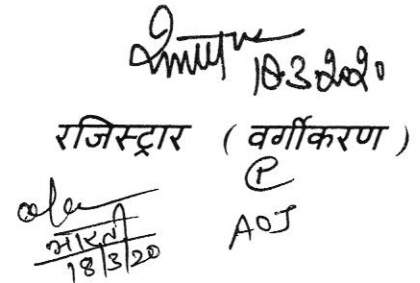 18.3.2020
रजिस्ट्रार ( वर्गीकरण )
P
भारती AOJ
18/3/20